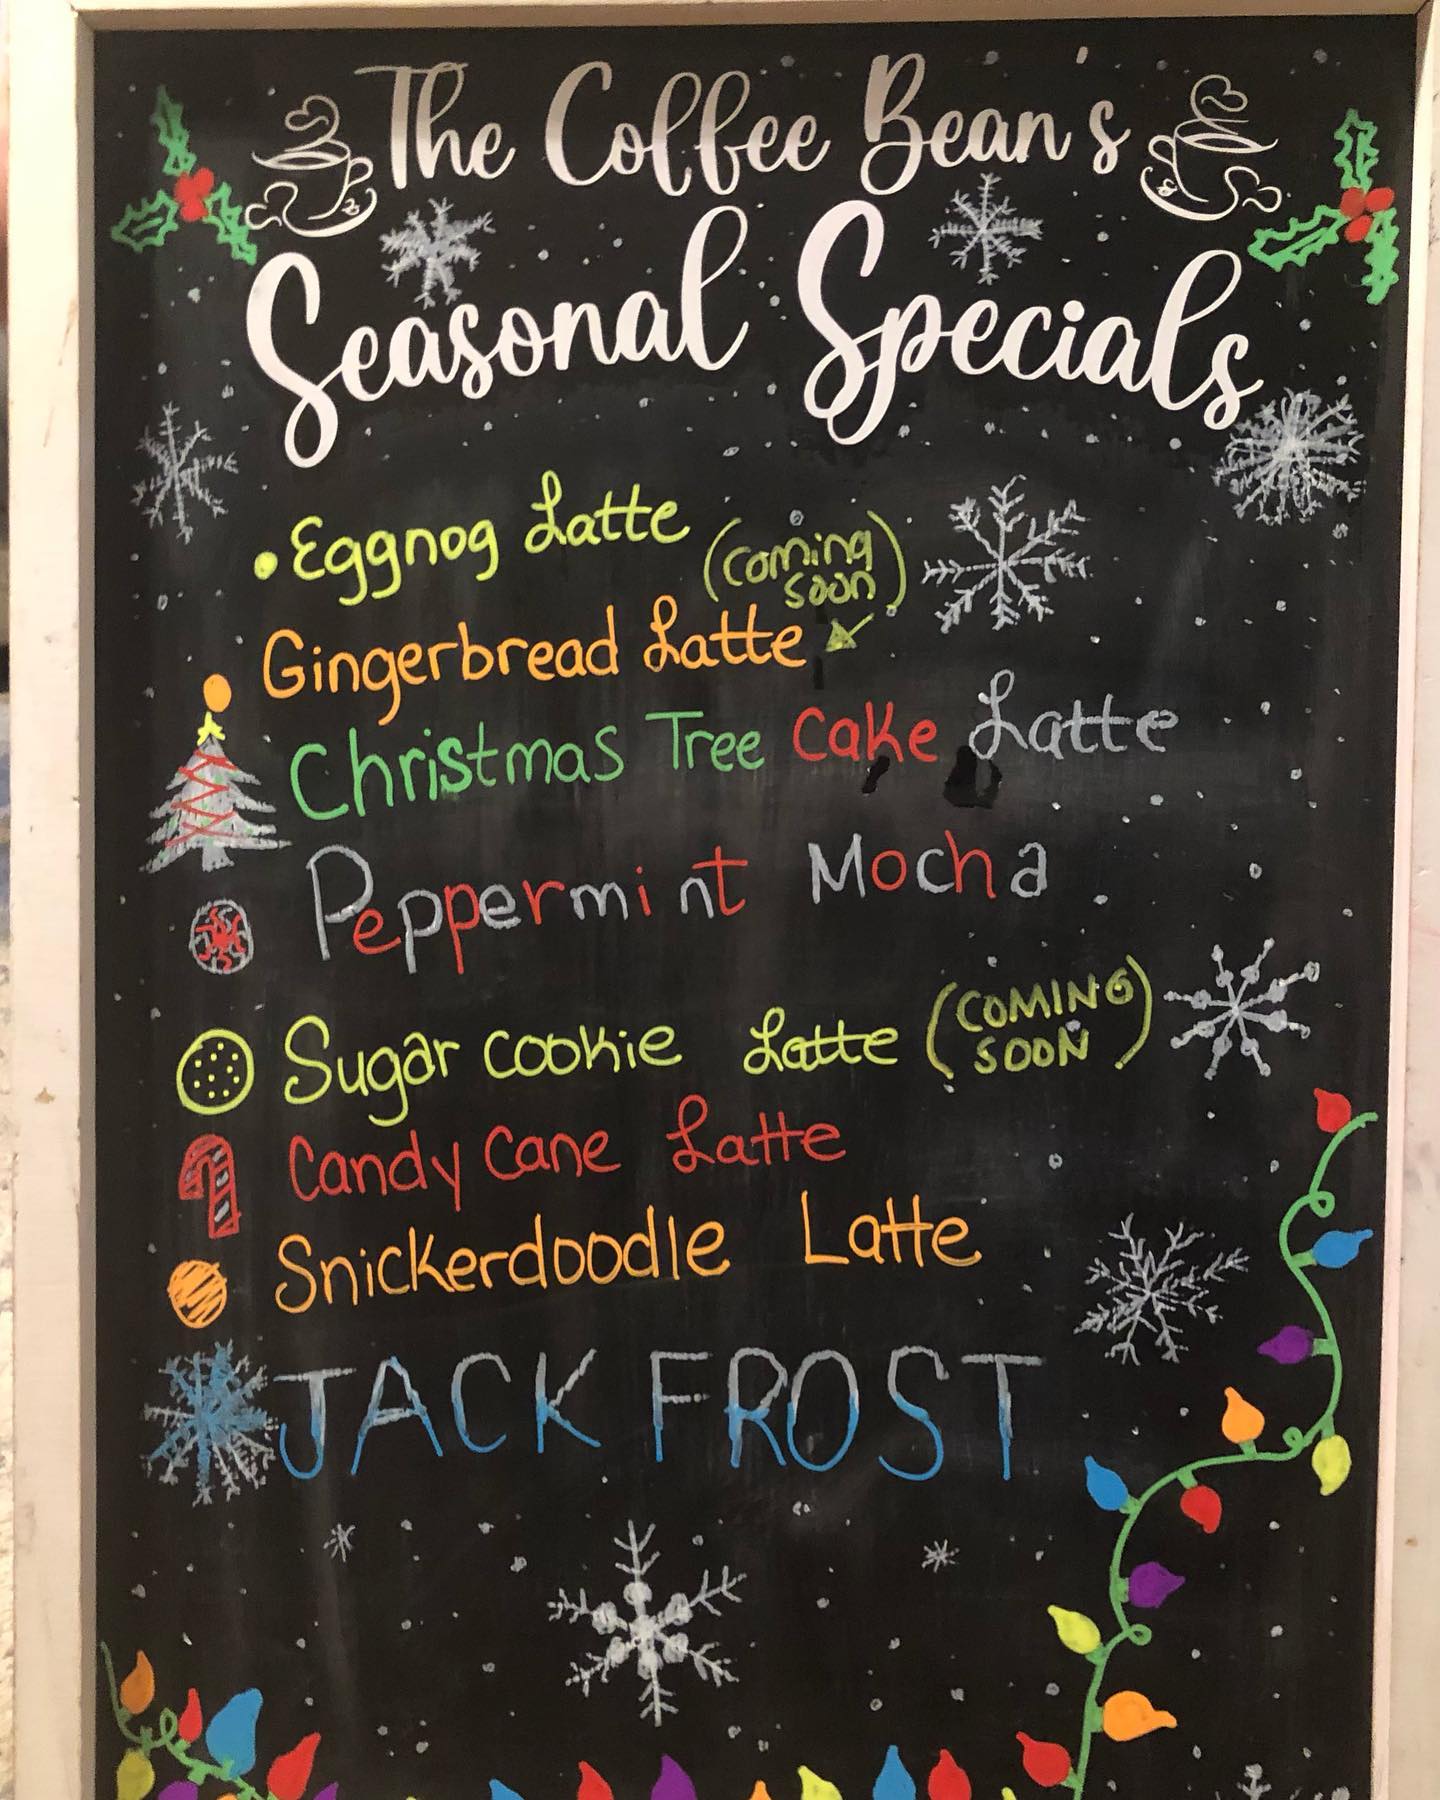 The Coffee Bean's
Seasonal Specials
• Eggnog Latte (coming soon)
Gingerbread Latte
Christmas Tree Cake Latte
Peppermint Mocha
Sugar Cookie Latte (COMING SOON)
Candy Cane Latte
Snickerdoodle Latte
JACK FROST